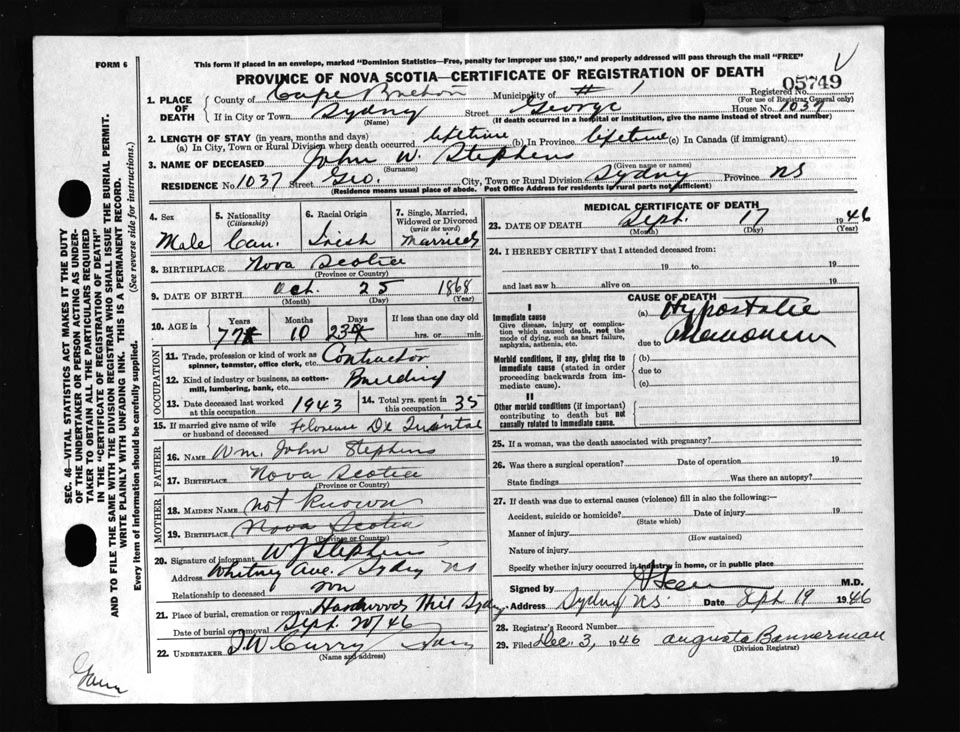 FORM 6
This form if placed in an envelope, marked "Dominion Statistics—Free, penalty for improper use $300," and properly addressed will pass through the mail "FREE"
PROVINCE OF NOVA SCOTIA—CERTIFICATE OF REGISTRATION OF DEATH
05749
1. PLACE OF DEATH
County of Cape Breton Municipality of # 1 Registered No.
(For use of Registrar General only)
If in City or Town Sydney Street George House No. 1037
(Name) (If death occurred in a hospital or institution, give the name instead of street and number)
2. LENGTH OF STAY (in years, months and days)
(a) In City, Town or Rural Division where death occurred lifetime (b) In Province lifetime (c) In Canada (if immigrant)
3. NAME OF DECEASED John W. Stephens
(Surname) (Given name or names)
RESIDENCE No. 1037 Street Geo. City, Town or Rural Division Sydney Province NS
(Residence means usual place of abode. Post Office Address for residents in rural parts not sufficient)
4. Sex Male
5. Nationality (Citizenship) Can.
6. Racial Origin Irish
7. Single, Married, Widowed or Divorced (write the word) Married
8. BIRTHPLACE Nova Scotia
(Province or Country)
9. DATE OF BIRTH Oct. 25 1868
(Month) (Day) (Year)
10. AGE in Years Months Days If less than one day old
77 10 23 hrs. or min
OCCUPATION
11. Trade, profession or kind of work as spinner, teamster, office clerk, etc. Contractor
12. Kind of industry or business, as cotton-mill, lumbering, bank, etc. Building
13. Date deceased last worked at this occupation 1943
14. Total yrs. spent in this occupation 35
15. If married give name of wife or husband of deceased Florence De
FATHER
16. NAME Wm. John Stephens
17. BIRTHPLACE Nova Scotia
(Province or Country)
MOTHER
18. MAIDEN NAME not known
19. BIRTHPLACE Nova Scotia
(Province or Country)
20. Signature of informant W J Stephens
Address Whitney Ave. Sydney NS
Relationship to deceased son
21. Place of burial, cremation or removal Hardwood Hill Sydney
Date of burial or removal Sept. 20/46
22. UNDERTAKER T.W. Curry
(Name and address)
MEDICAL CERTIFICATE OF DEATH
23. DATE OF DEATH Sept. 17 1946
(Month) (Day) (Year)
24. I HEREBY CERTIFY that I attended deceased from:
19 to 19
and last saw h alive on 19
CAUSE OF DEATH
I
Immediate cause
Give disease, injury or complication which caused death, not the mode of dying, such as heart failure, asphyxia, asthenia, etc.
(a) Hypostatic
due to Pneumonia
Morbid conditions, if any, giving rise to immediate cause (stated in order proceeding backwards from immediate cause).
(b)
due to
(c)
II
Other morbid conditions (if important) contributing to death but not causally related to immediate cause.
25. If a woman, was the death associated with pregnancy?
26. Was there a surgical operation? Date of operation 19
State findings Was there an autopsy?
27. If death was due to external causes (violence) fill in also the following:—
Accident, suicide or homicide? Date of injury 19
(State which)
Manner of injury
(How sustained)
Nature of injury
Specify whether injury occurred in industry, in home, or in public place
Signed by M.D.
Address Sydney NS. Date Sept 19 1946
28. Registrar's Record Number
29. Filed Dec. 3, 1946 Augusta Bannerman
(Division Registrar)
SEC. 46—VITAL STATISTICS ACT MAKES IT THE DUTY
OF THE UNDERTAKER OR PERSON ACTING AS UNDER-
TAKER TO OBTAIN ALL THE PARTICULARS REQUIRED
IN THE "CERTIFICATE OF REGISTRATION OF DEATH"
AND TO FILE THE SAME WITH THE DIVISION REGISTRAR WHO SHALL ISSUE THE BURIAL PERMIT.
WRITE PLAINLY WITH UNFADING INK. THIS IS A PERMANENT RECORD.
Every item of information should be carefully supplied. (See reverse side for instructions.)